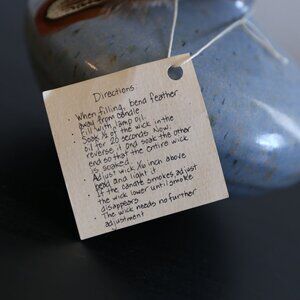 Directions:
· When filling, bend feather
away from candle
· Fill with lamp oil.
· Soak ½ of the wick in the
oil for 20 seconds. Now
reverse it and soak the other
end so that the entire wick
is soaked.
· Adjust wick 1/16 inch above
bead and light it
· If the candle smokes, adjust
the wick lower until smoke
disappears
· The wick needs no further
adjustment